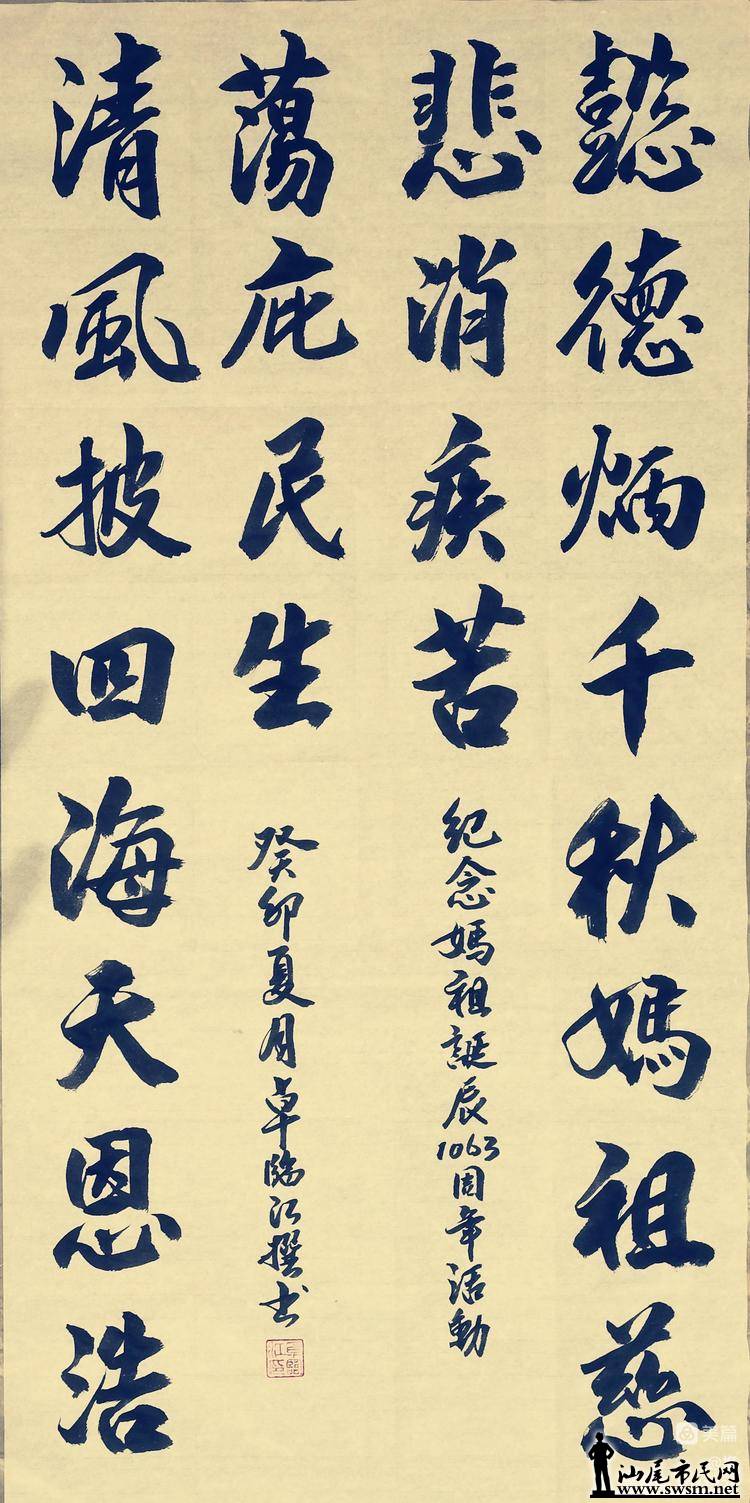 懿德炳千秋媽祖慈
悲消疾苦
紀念媽祖誕辰1063周年活動
清風披四海天恩浩
蕩庇民生
癸卯夏月卓臨江撰书
美篇
汕尾市民网
www.swsm.net